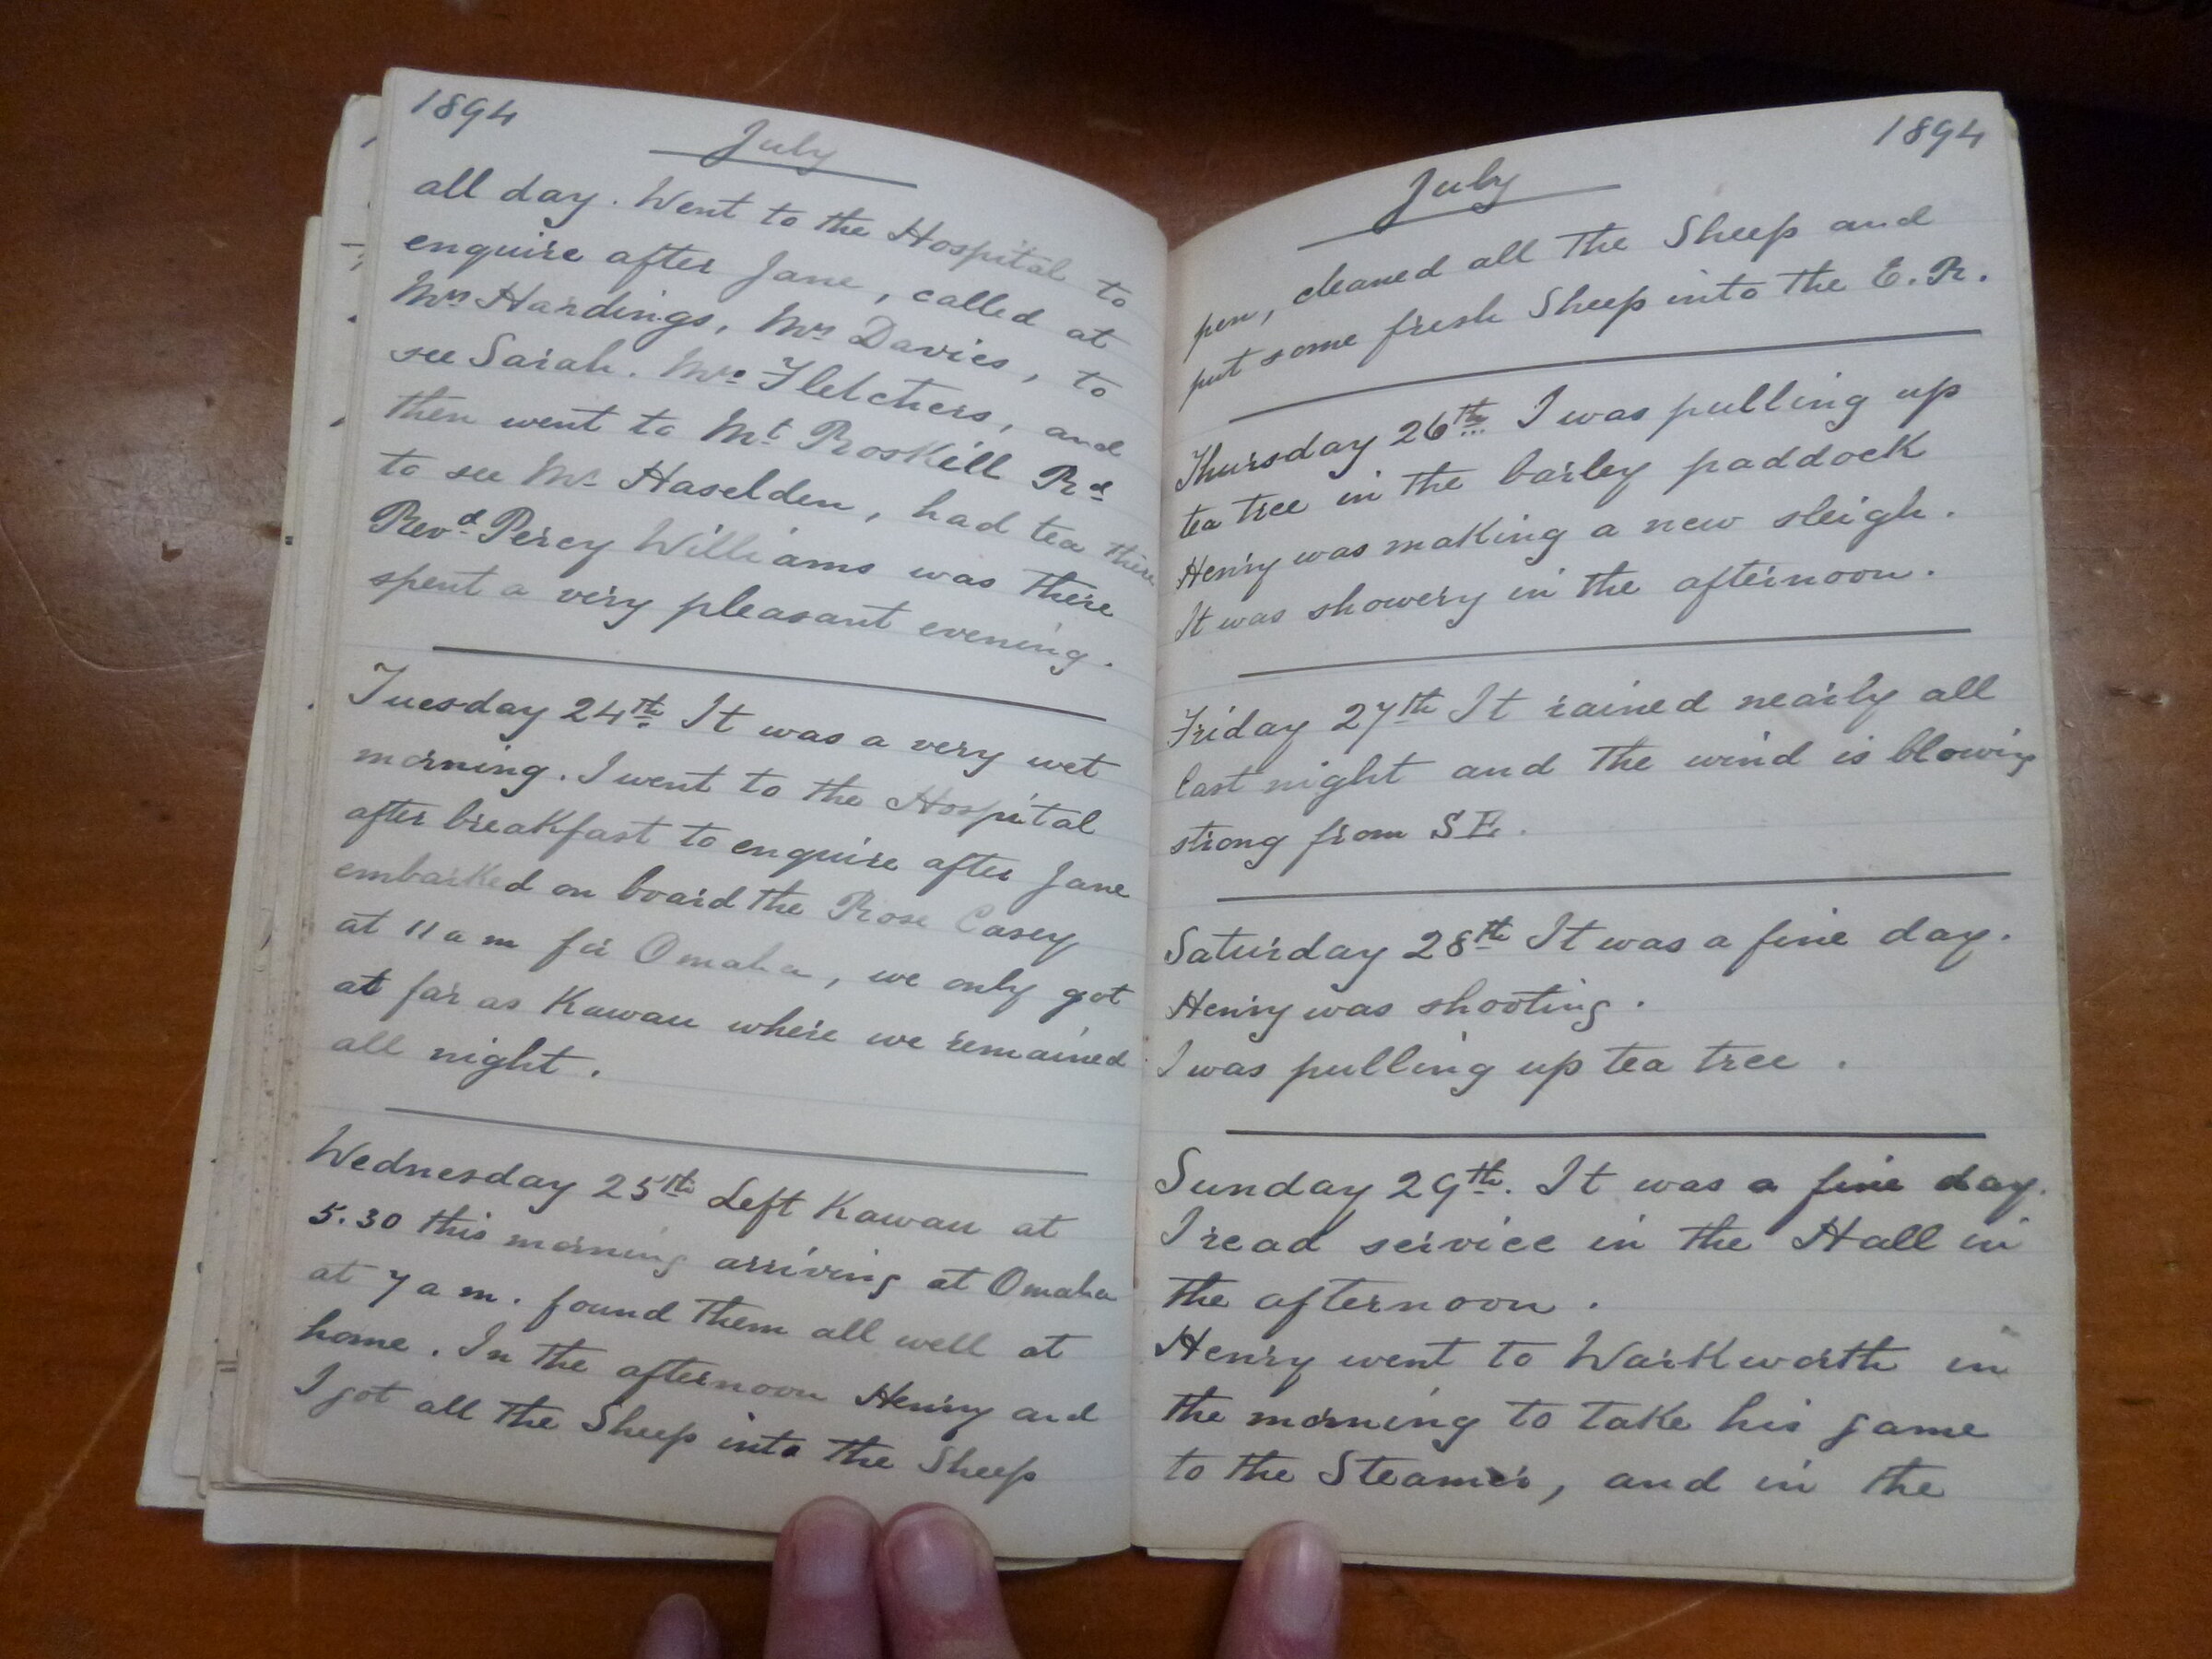 1894
July
all day. Went to the Hospital to
enquire after Jane, called at
Mrs Hardings, Mrs Davies, to
see Sarah. Mrs Fletchers, and
then went to Mt Roskill Rd
to see Mr Haselden, had tea there
Revd Percy Williams was there
spent a very pleasant evening.
Tuesday 24th It was a very wet
morning. I went to the Hospital
after breakfast to enquire after Jane
embarked on board the Rose Casey
at 11 a m for Omaha, we only got
at far as Kawau where we remained
all night.
Wednesday 25th Left Kawau at
5.30 this morning arriving at Omaha
at 7 a m. found them all well at
home. In the afternoon Henry and
I got all the Sheep into the Sheep
1894
July
pen, cleaned all the Sheep and
put some fresh Sheep into the E. R.
Thursday 26th I was pulling up
tea tree in the barley paddock
Henry was making a new sleigh.
It was showery in the afternoon.
Friday 27th It rained nearly all
last night and the wind is blowing
strong from SE.
Saturday 28th It was a fine day.
Henry was shooting.
I was pulling up tea tree.
Sunday 29th. It was a fine day.
I read service in the Hall in
the afternoon.
Henry went to Warkworth in
the morning to take his game
to the Steamer, and in the